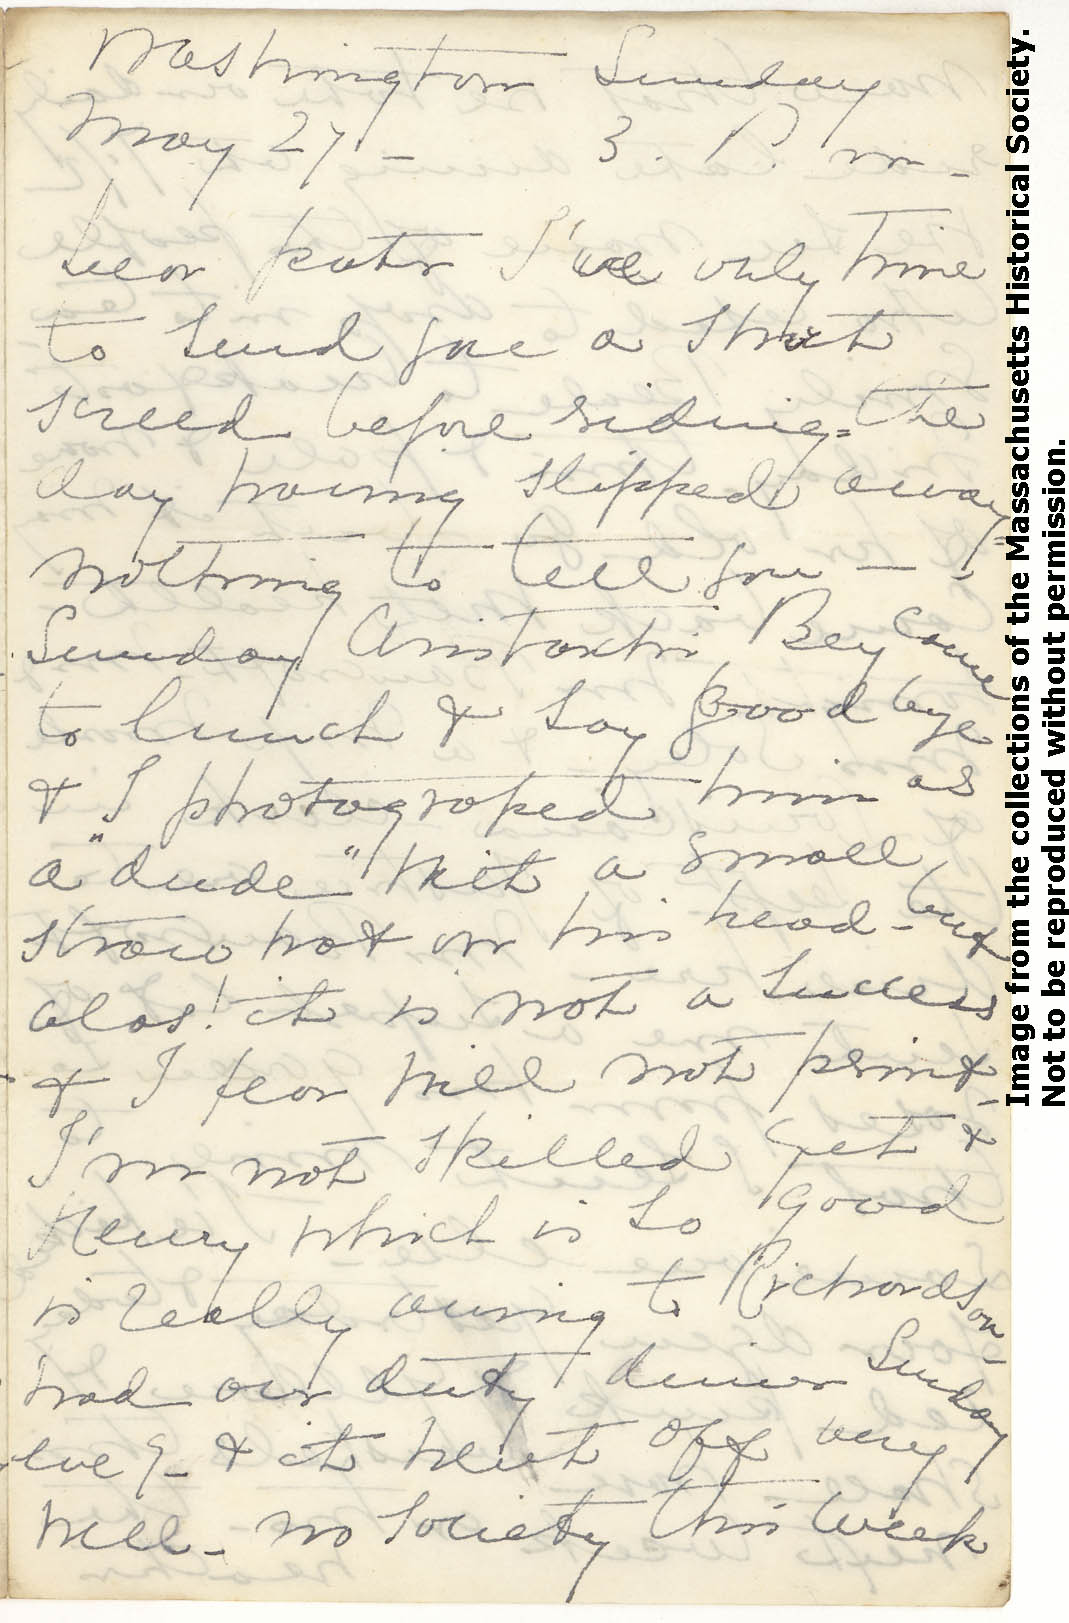 Washington Sunday
May 27 - 3. P. m -
Dear pater I've only time
to send you a short
screed before riding = the
day having slipped away =
nothing to tell you — -
Sunday Aristarchi Bey came
to lunch & say good bye
& I photographed him as
a "dude" with a small
straw hat on his head - but
alas! it is not a success
& I fear will not print -
I'm not skilled yet &
Henry which is so good
is really owing to Richardson -
had our duty dinner Sunday
eve g - & it went off very
well - no society this week
Image from the collections of the Massachusetts Historical Society.
Not to be reproduced without permission.